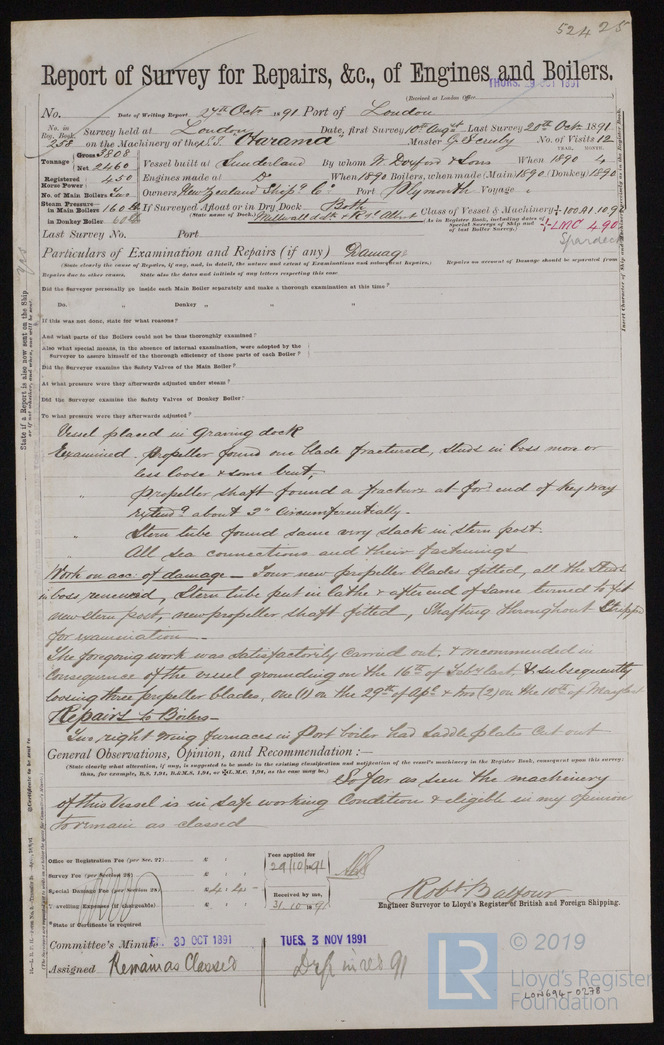 52425
Report of Survey for Repairs, &c., of Engines and Boilers.
(Received at London Office
THURS. 29 OCT 1891
No. Date of Writing Report 27th Octr 1891 Port of London
No. in Reg. Book. 258 Survey held at London Date, first Survey 10th Augst Last Survey 20th Octr 1891
on the Machinery of the S.S. Otarama Master G. Scruby No. of Visits 12
Tonnage Gross 3808 Net 2460
Vessel built at Sunderland By whom W. Doxford & Sons When 1890 4
YEAR. MONTH.
Registered Horse Power 450 Engines made at Do When 1890 Boilers, when made (Main) 1890 (Donkey) 1890
No. of Main Boilers Two Owners New Zealand Shipg Co. Port Plymouth Voyage
Steam Pressure in Main Boilers 160 lb If Surveyed Afloat or in Dry Dock Both Class of Vessel & Machinery + 100 A1. 10.9
in Donkey Boiler 60 lb (State name of Dock.) Millwall dock & Rl Albert
As in Register Book, including dates of Special Surveys of Ship and of last Boiler Survey.)
+ LMC 4.90
Spardeck
Last Survey No. Port
Particulars of Examination and Repairs (if any) Damage
(State clearly the cause of Repairs, if any, and, in detail, the nature and extent of Examinations and subsequent Repairs.) Repairs on account of Damage should be separated from
Repairs due to other causes. State also the dates and initials of any letters respecting this case.
Did the Surveyor personally go inside each Main Boiler separately and make a thorough examination at this time?
Do. " Donkey " " "
If this was not done, state for what reasons?
And what parts of the Boilers could not be thus thoroughly examined?
Also what special means, in the absence of internal examination, were adopted by the
Surveyor to assure himself of the thorough efficiency of those parts of each Boiler?
Did the Surveyor examine the Safety Valves of the Main Boiler?
At what pressure were they afterwards adjusted under steam?
Did the Surveyor examine the Safety Valves of Donkey Boiler?
To what pressure were they afterwards adjusted?
Vessel placed in Graving dock
Examined. Propeller found one blade fractured, studs in boss more or
less loose & some bent,
" Propeller shaft found a fracture at ford end of key way
extendg about 3" Circumferentially.
" Stern tube found same very slack in stern post.
" All sea connections and their fastenings
Work on acc. of damage — Four new propeller blades fitted, all the studs
in boss renewed, Stern tube put in lathe & after end of same turned to fit
new stern post, new propeller shaft fitted, Shafting throughout Stripped
for examination.
The foregoing work was satisfactorily carried out, & recommended in
Consequence of the vessel grounding on the 16th of Feby last, & subsequently
loosing three propeller blades, one (1) on the 29th of Apl & two (2) on the 10th of May last
Repairs to Boilers —
Two right wing furnaces in Port boiler had saddle plates cut out
General Observations, Opinion, and Recommendation :—
(State clearly what alteration, if any, is suggested to be made in the existing classification and notification of the vessel's machinery in the Register Book, consequent upon this survey:
thus, for example, B.S. 1,91, B.&M.S. 1,91, or + L.M.C. 1,91, as the case may be.)
So far as seen the machinery
of this Vessel is in safe working Condition & eligible in my opinion
to remain as classed
Office or Registration Fee (per Sec. 27) £
Survey Fee (per Section 28) £
Special Damage Fee (per Section 28) £ 4. 4. -
Travelling Expenses (if chargeable) £
*State if Certificate is required
Fees applied for
29/10/1891
Received by me,
31.10.1891
Robt Balfour
Engineer Surveyor to Lloyd's Register of British and Foreign Shipping.
Committee's Minute FRI. 30 OCT 1891 TUES. 3 NOV 1891
Assigned Remain as Classed
State if a Report is also now sent on the Ship Yes
or if not, whether, and when, one will be sent.
© 2019
LR
Lloyd's Register
Foundation
LON694-0278